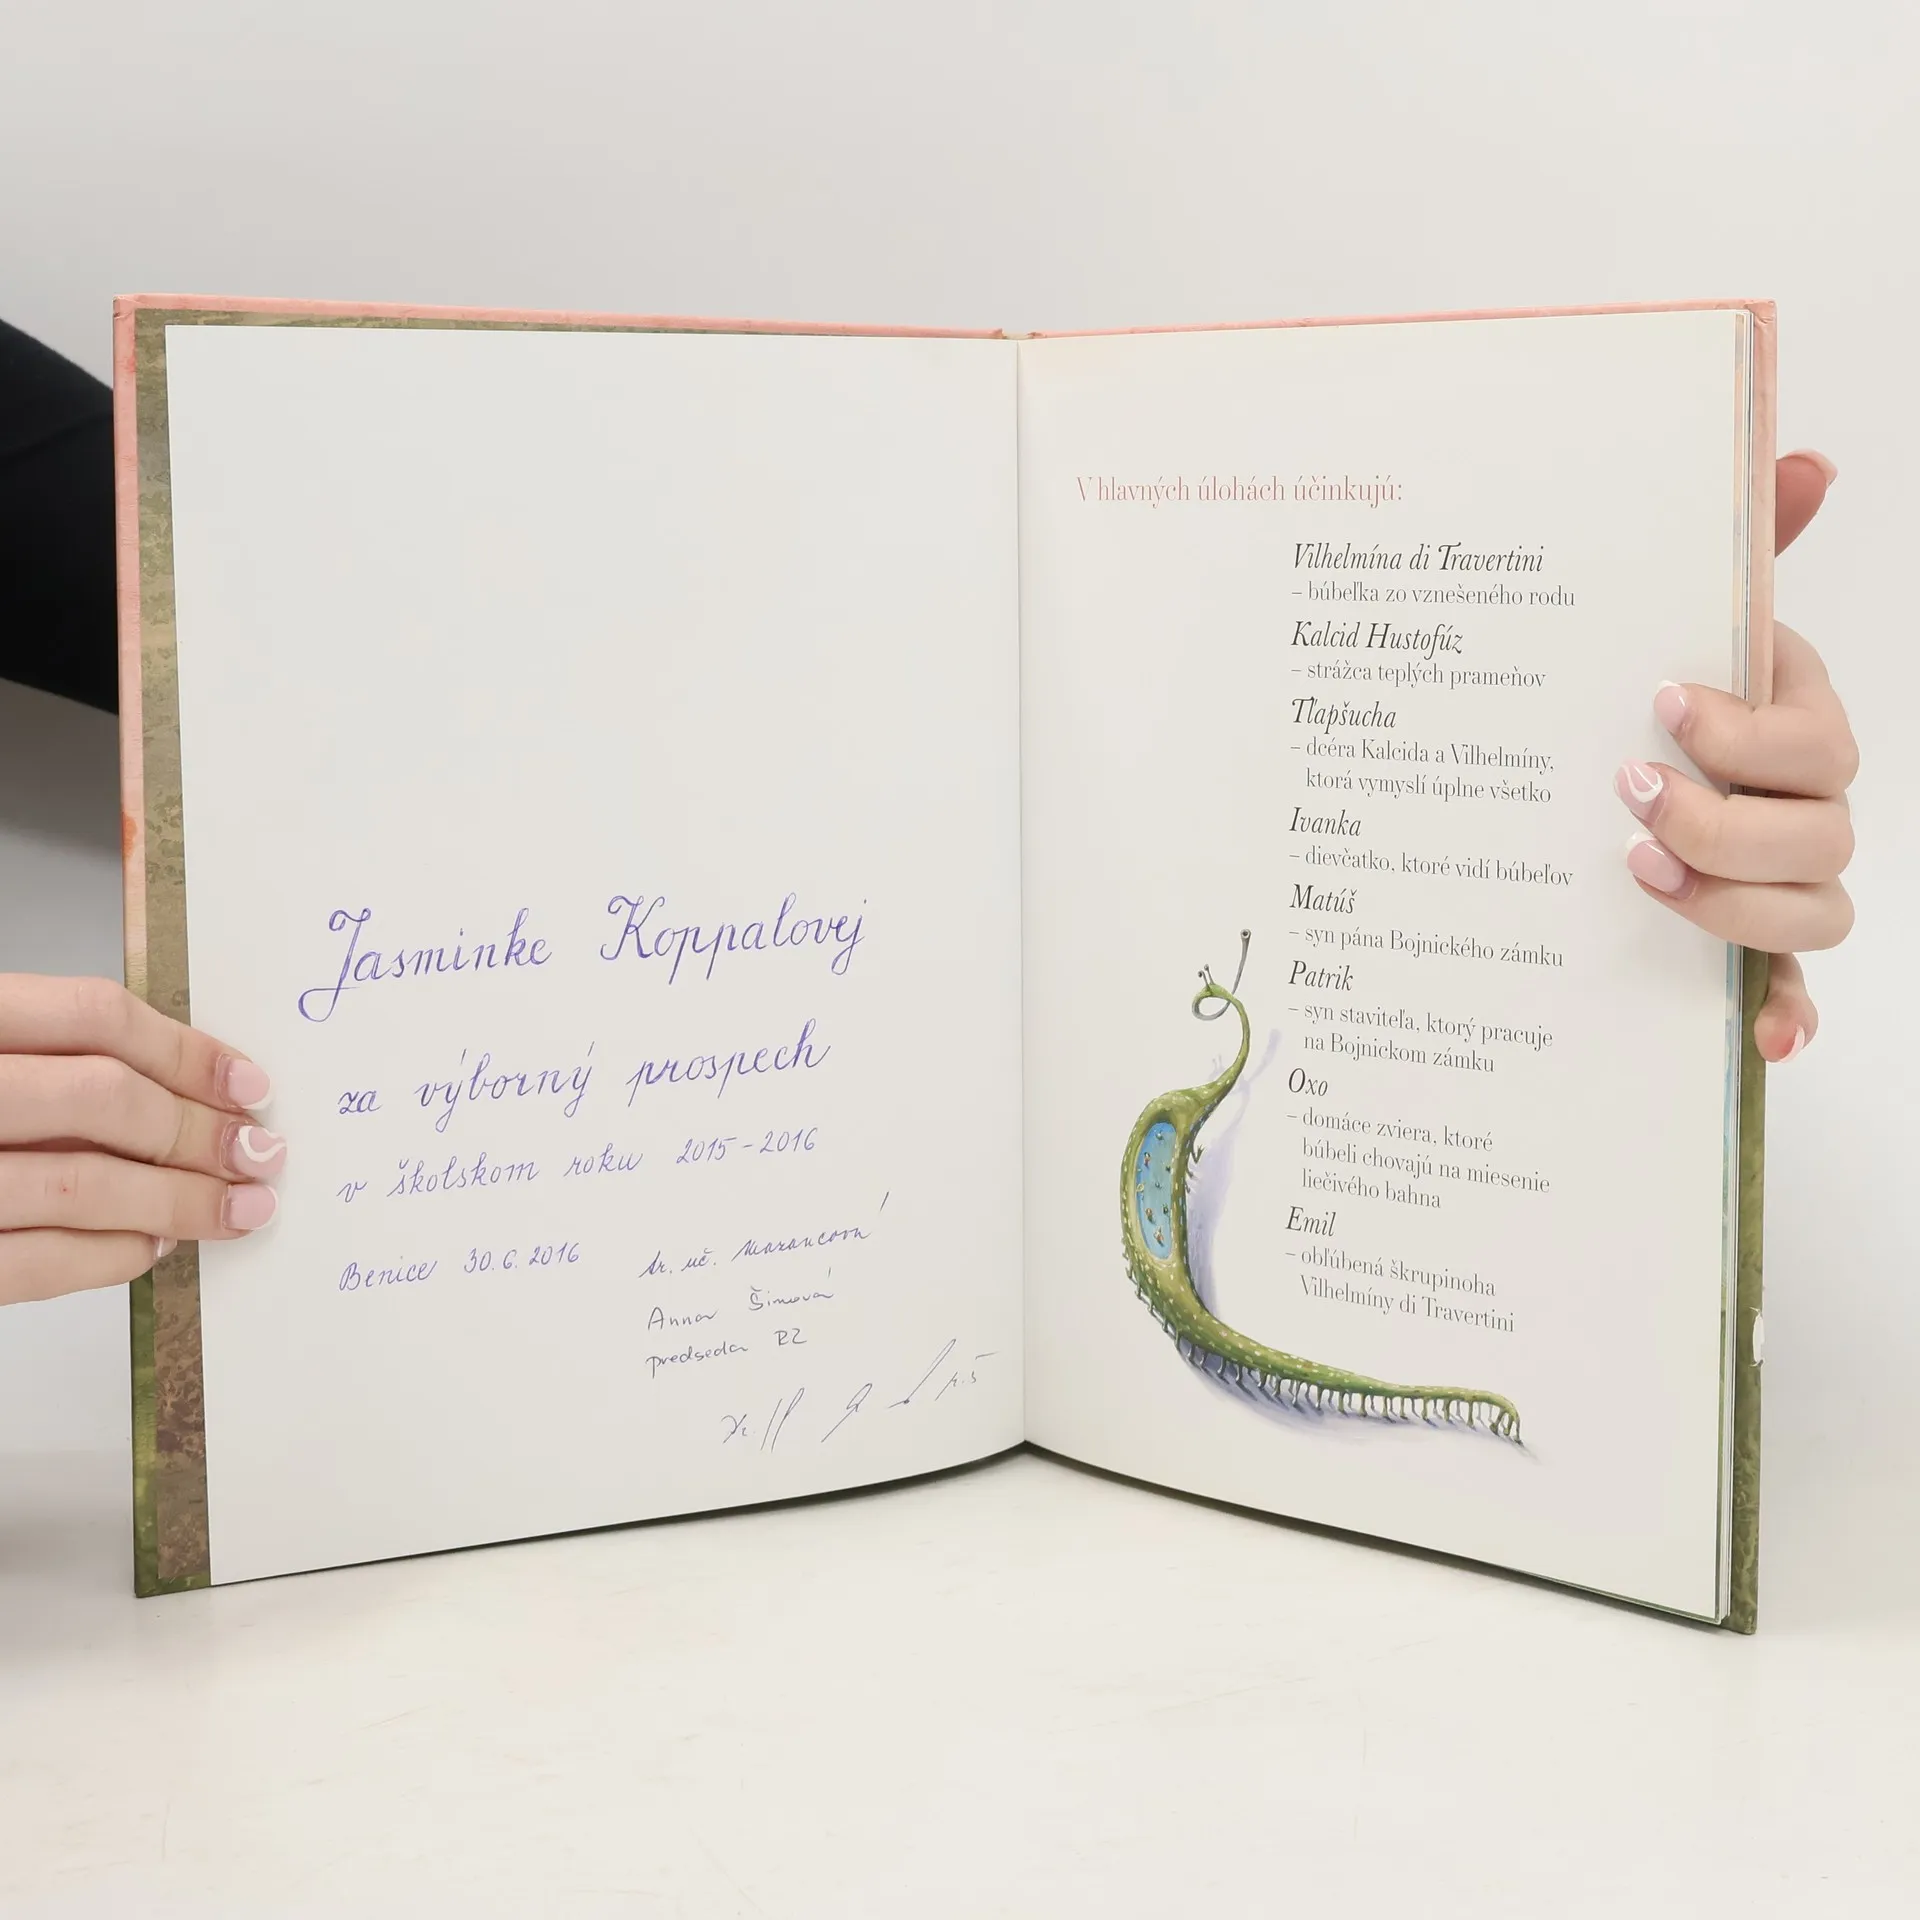 Jasminke Koppalovej
za výborný prospech
v školskom roku 2015-2016
Benice 30.6.2016
tr. uč.
Anna Šimová
predseda RZ
V hlavných úlohách účinkujú:
Vilhelmína di Travertini
– búbeľka zo vznešeného rodu
Kalcid Hustofúz
– strážca teplých prameňov
Tľapšucha
– dcéra Kalcida a Vilhelmíny,
ktorá vymyslí úplne všetko
Ivanka
– dievčatko, ktoré vidí búbeľov
Matúš
– syn pána Bojnického zámku
Patrik
– syn staviteľa, ktorý pracuje
na Bojnickom zámku
Oxo
– domáce zviera, ktoré
búbeli chovajú na miesenie
liečivého bahna
Emil
– obľúbená škrupinoha
Vilhelmíny di Travertini